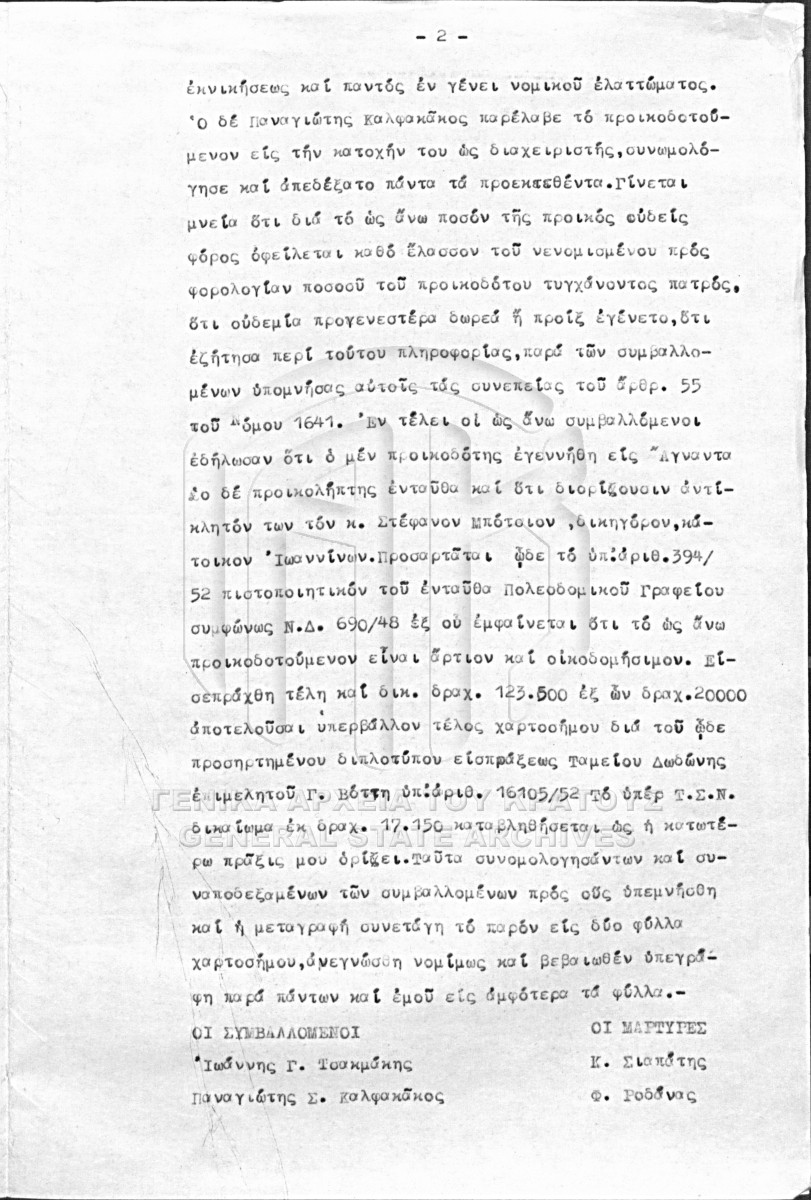 - 2 -
ἐκνικήσεως καί παντός ἐν γένει νομικοῦ ἐλαττώματος.
Ὁ δέ Παναγιώτης Καλφακᾶκος παρέλαβε τό προικοδοτού-
μενον είς τήν κατοχήν του ὡς διαχειριστής,συνωμολό-
γησε καί ἀπεδέξατο πάντα τά προεκτεθέντα.Γίνεται
μνεία ὅτι διά τό ὡς ἄνω ποσόν τῆς προικός οὐδείς
φόρος ὀφείλεται καθό ἔλασσον τοῦ νενομισμένου πρός
φορολογίαν ποσοσῦ τοῦ προικοδότου τυγχάνοντος πατρός,
ὅτι οὐδεμία προγενεστέρα δωρεά ἤ προίξ ἐγένετο,ὅτι
ἐζήτησα περί τούτου πληροφορίας,παρά τῶν συμβαλλο-
μένων ὑπομνήσας αὐτοῖς τάς συνεπείας τοῦ ἄρθρ. 55
τοῦ Νόμου 1641. Ἐν τέλει οἱ ὡς ἄνω συμβαλλόμενοι
ἐδήλωσαν ὅτι ὁ μέν προικοδότης ἐγεννήθη είς Ἄγναντα
ὁ δέ προικολήπτης ἐνταῦθα καί ὅτι διορίζουσιν ἀντί-
κλητόν των τόν κ. Στέφανον Μπότσιον ,δικηγόρον,κά-
τοικον Ἰωαννίνων.Προσαρτᾶται ᾧδε τό ὑπ'ἀριθ.394/
52 πιστοποιητικόν τοῦ ἐνταῦθα Πολεοδομικοῦ Γραφείου
συμφώνως Ν.Δ. 690/48 ἐξ οὗ ἐμφαίνεται ὅτι τό ὡς ἄνω
προικοδοτούμενον εἶναι ἄρτιον καί οἰκοδομήσιμον. Εἰ-
σεπράχθη τέλη καί δικ. δραχ. 123.500 ἐξ ὧν δραχ.20000
ἀποτελοῦσαι ὑπερβάλλον τέλος χαρτοσήμου διά τοῦ ᾧδε
προσηρτημένου διπλοτύπου εἰσπράξεως Ταμείου Δωδώνης
ἐπιμελητοῦ Γ. Βόττη ὑπ'ἀριθ. 16105/52 Τό ὑπέρ Τ.Σ.Ν.
ΓΕΝΙΚΑ ΑΡΧΕΙΑ ΤΟΥ ΚΡΑΤΟΥΣ
δικαίωμα ἐκ δραχ. 17.150 καταβληθήσεται ὡς ἡ κατωτέ-
GENERAL STATE ARCHIVES
ρω πρᾶξις μου ὁρίζει.Ταῦτα συνομολογησάντων καί συ-
ναποδεξαμένων τῶν συμβαλλομένων πρός οὕς ὑπεμνήσθη
καί ἡ μεταγραφή συνετάγη τό παρόν είς δύο φύλλα
χαρτοσήμου,ἀνεγνώσθη νομίμως καί βεβαιωθέν ὑπεγρά-
φη παρά πάντων καί ἐμοῦ είς ἀμφότερα τά φύλλα.-
ΟΙ ΣΥΜΒΑΛΛΟΜΕΝΟΙ ΟΙ ΜΑΡΤΥΡΕΣ
Ἰωάννης Γ. Τσακμάκης Κ. Σιαπάτης
Παναγιώτης Σ. Καλφακᾶκος Φ. Ροδάνας